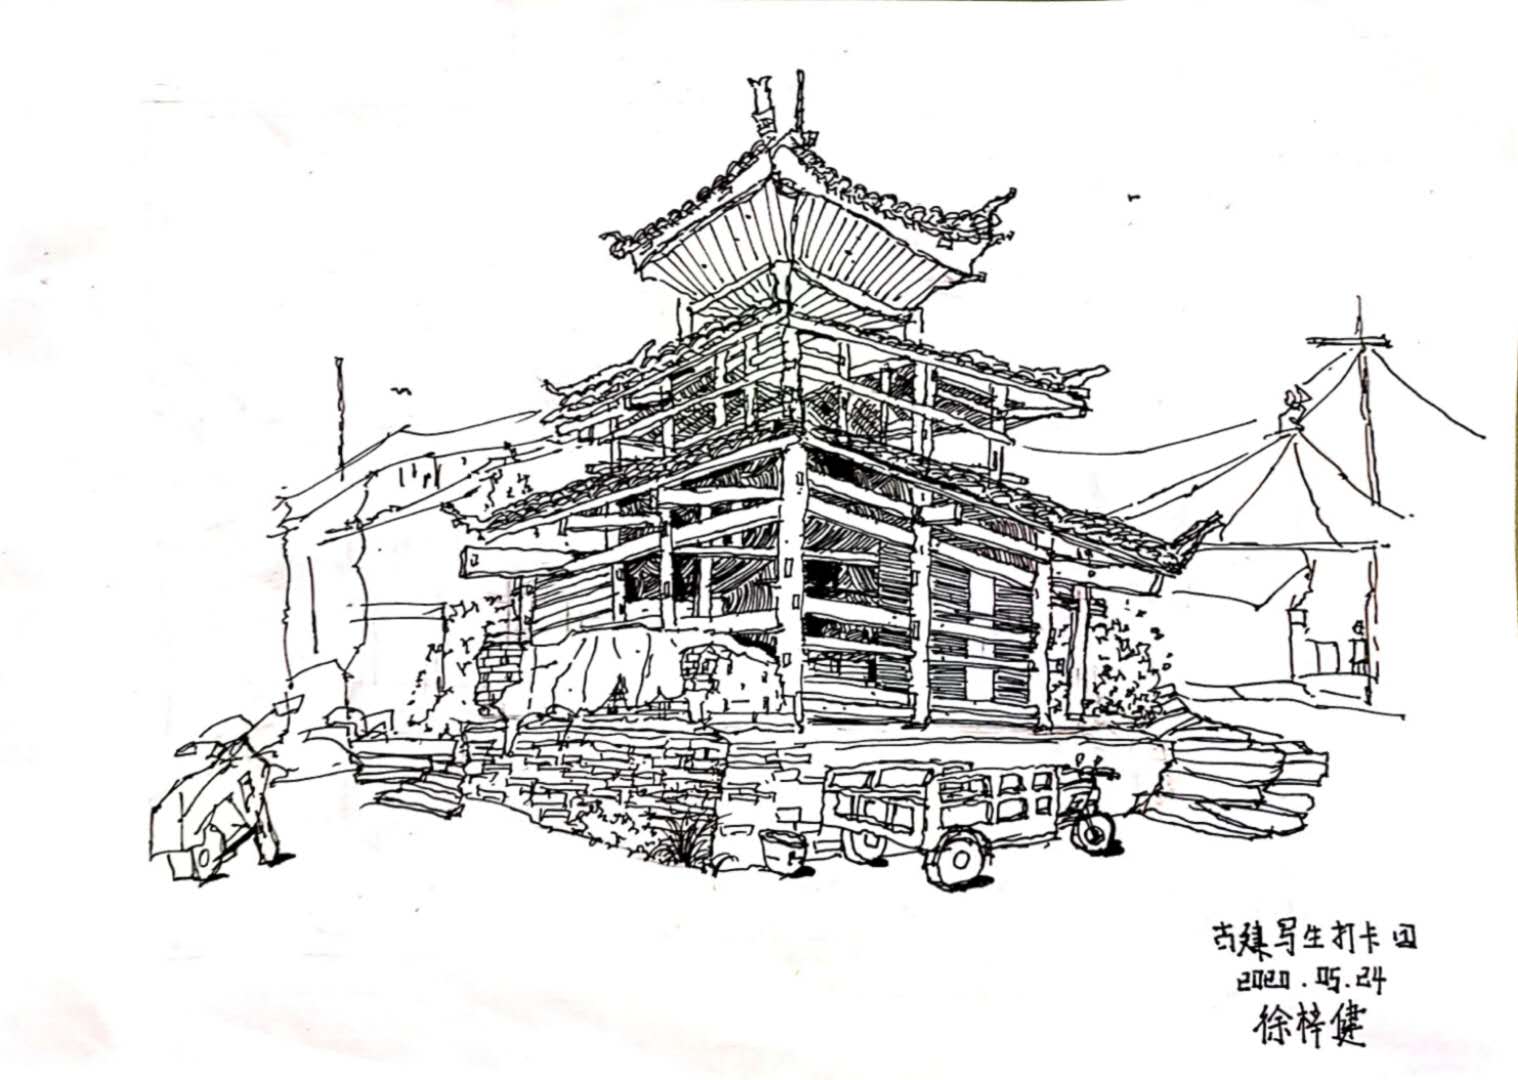 古建写生打卡团
2020.05.24
徐梓健